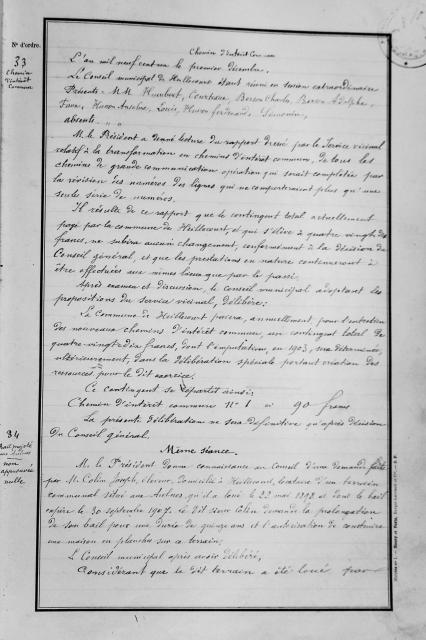 N° d'ordre.
33
Chemin
d'intérêt
Commun
Chemin d'intérêt Commun
L'an mil neuf cent un le premier décembre,
Le Conseil municipal de Heillecourt étant réuni en session extraordinaire
Présents: MM. Humbert, Courtois, Charles, Adolphe,
Favre, Anselme, Louis, Ferdinand,
absents. " "
M. le Président a donné lecture du rapport dressé par le Service vicinal
relatif à la transformation en chemins d'intérêt commun, de tous les
chemins de grande communication opération qui serait complétée par
la révision des numéros des lignes qui ne comporteraient plus qu'une
seule série de numéros.
Il résulte de ce rapport que le contingent total actuellement
payé par la commune de Heillecourt, et qui s'élève à quatre vingt dix
francs, ne subira aucun changement, conformément à la décision du
Conseil général, et que les prestations en nature continueront à
être effectuées aux mêmes lieux que par le passé.
Après examen et discussion, le Conseil municipal adoptant les
propositions du service vicinal, délibère:
La Commune de Heillecourt paiera, annuellement pour l'entretien
des nouveaux chemins d'intérêt commun, un contingent total de
quatre-vingt-dix francs, dont l'imputation, en 1903, sera déterminée,
ultérieurement, dans la délibération spéciale portant création des
ressources pour le dit exercice.
Ce contingent se répartit ainsi:
Chemin d'intérêt commun N° 1 90 francs
La présente délibération ne sera définitive qu'après décision
Du Conseil général.
34
non
approuvée
nulle
Même séance.
M. le Président donne connaissance au Conseil d'une demande faite
par M. Colin Joseph, domicilié à Heillecourt, locataire d'un terrain
communal situé aux qu'il a loué le 23 mai 1898 et dont le bail
expire le 30 septembre 1907. Le dit sieur Colin demande la prolongation
de son bail pour une durée de quinze ans et l'autorisation de construire
une maison en planches sur ce terrain;
Le Conseil municipal après avoir délibéré,
Considérant que le dit terrain a été loué pour